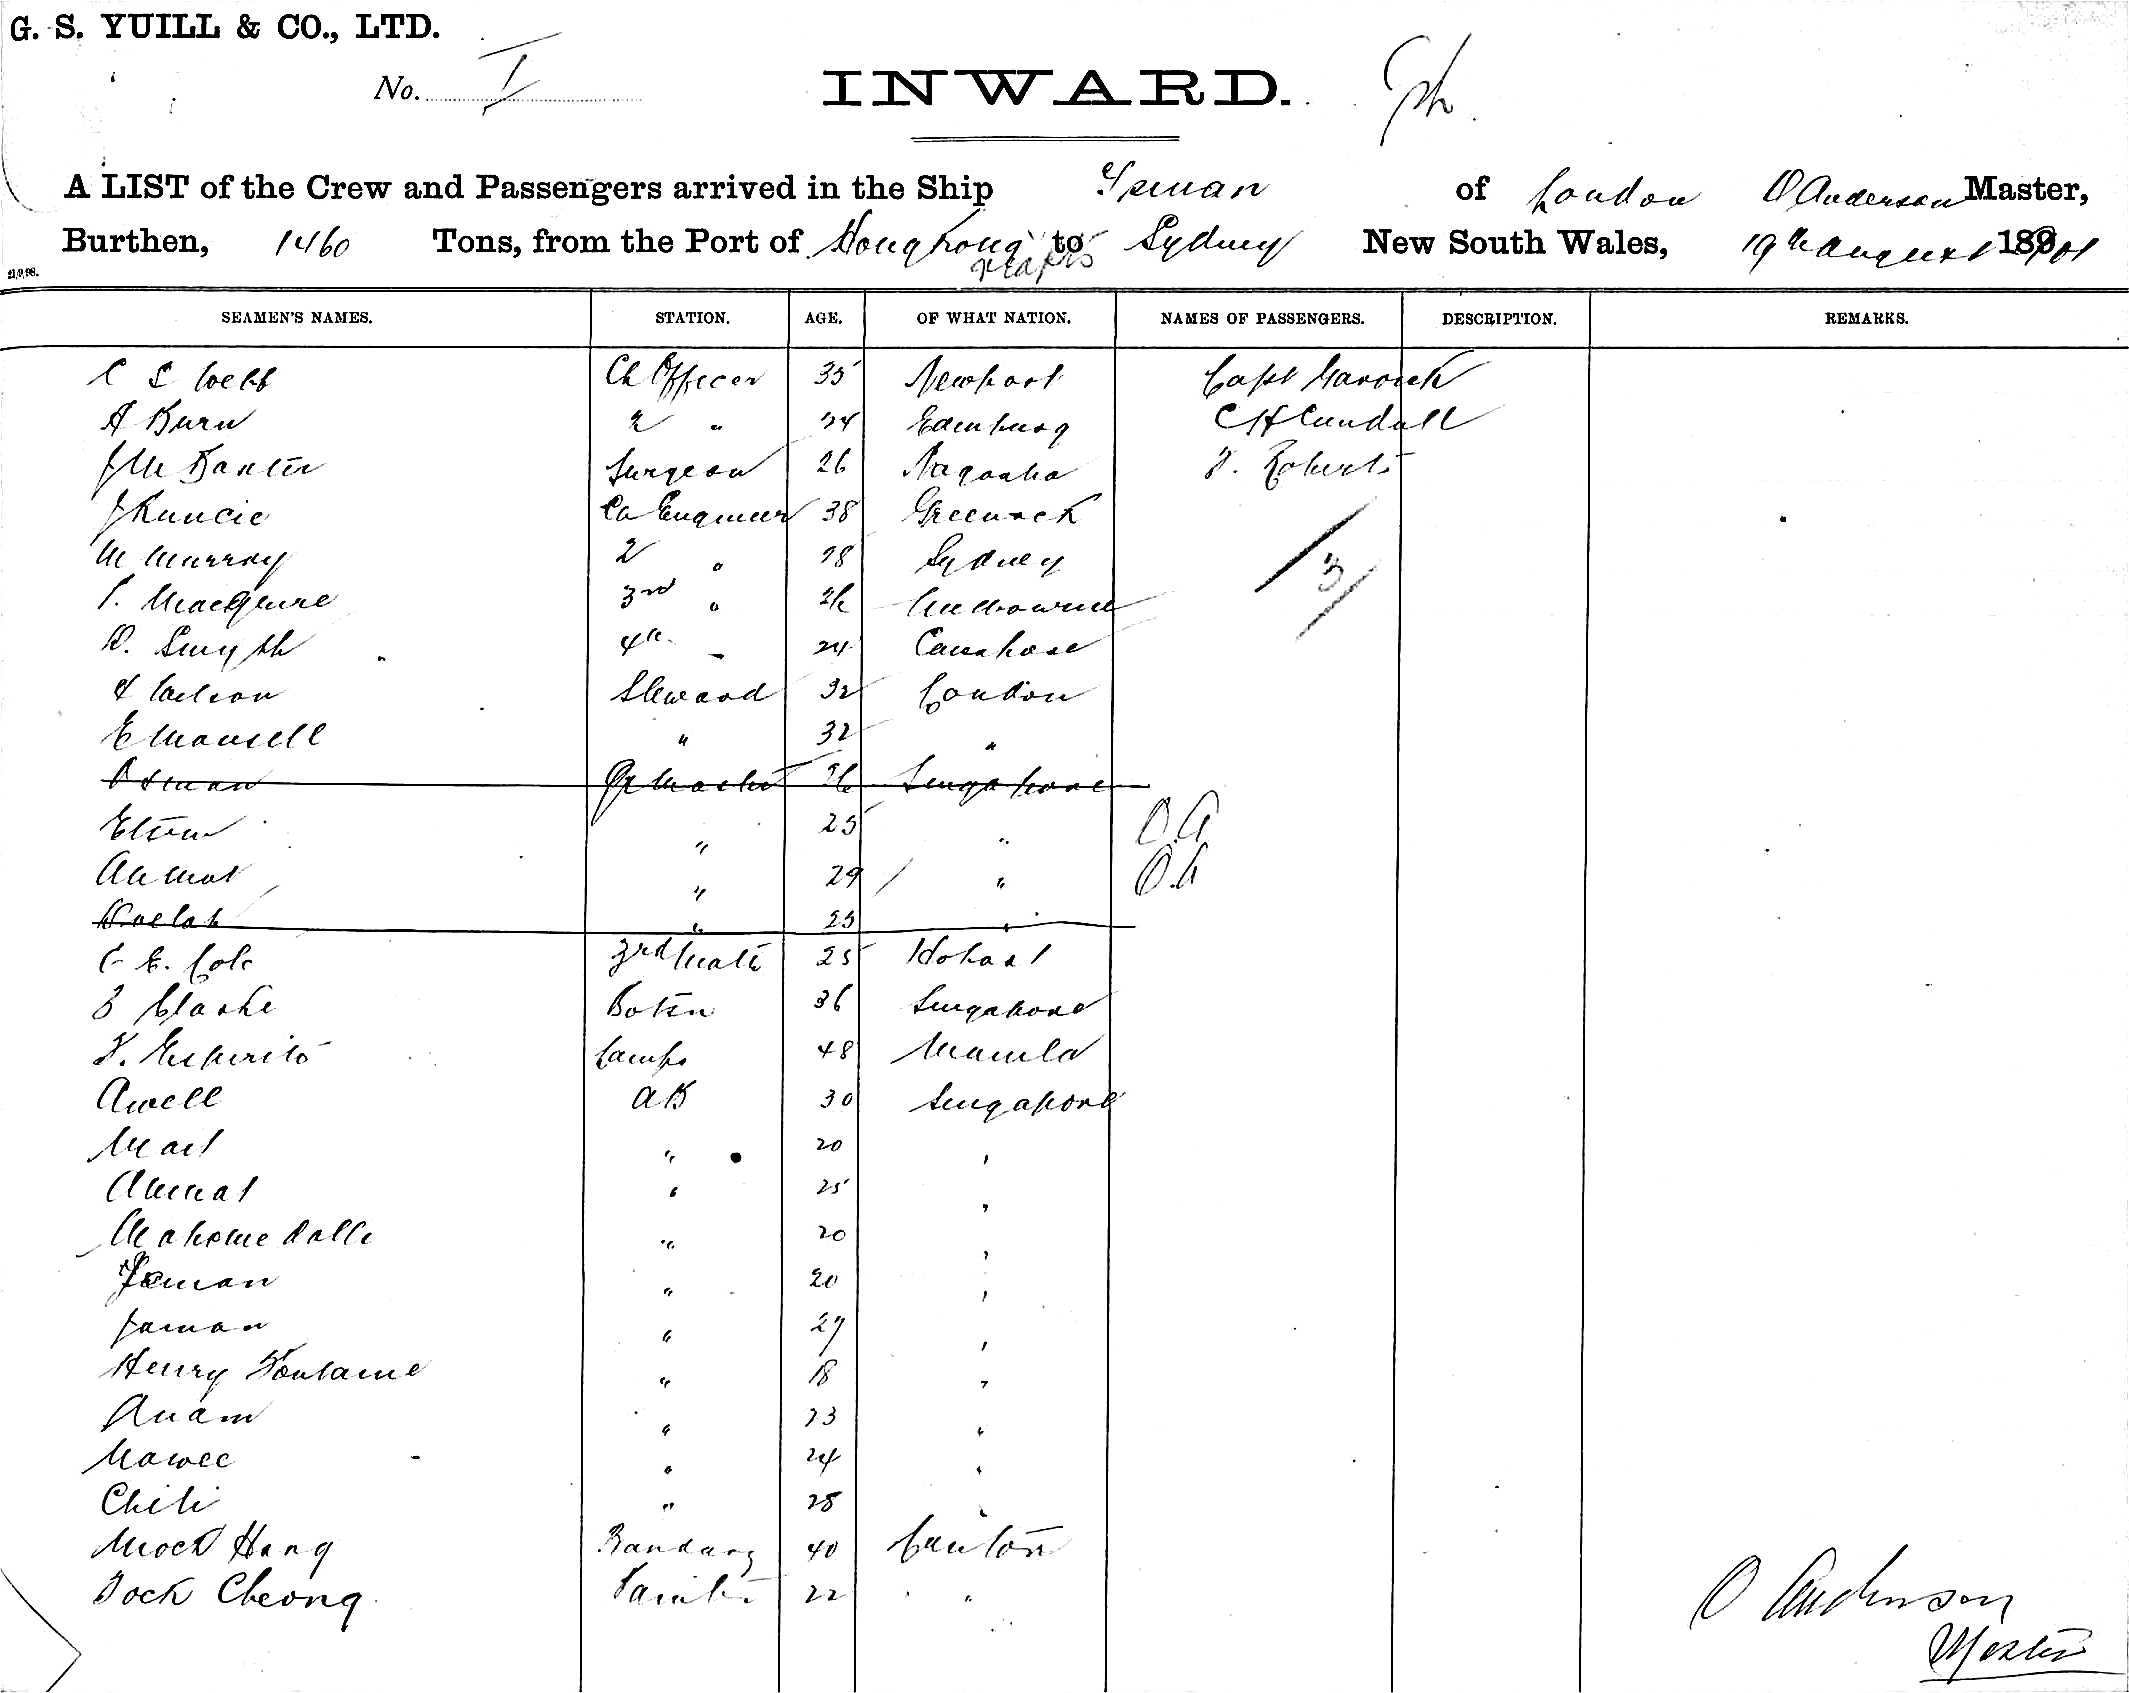 G. S. YUILL & CO., LTD.
No. I
INWARD.
A LIST of the Crew and Passengers arrived in the Ship of London O Anderson Master,
Burthen, 1460 Tons, from the Port of Hongkong to Sydney New South Wales, 19th August 1901
21/9/98.
SEAMEN'S NAMES. STATION. AGE. OF WHAT NATION. NAMES OF PASSENGERS. DESCRIPTION. REMARKS.
C S Webb Ch Officer 35 Newport Capt
A Burn 2 " 24 Edinburg C H Cundall
J M Baxter Surgeon 26 F. Roberts
J Runcie Ch Engineer 38 Greenock
M Murray 2 " 28 Sydney
3rd " 26
D. Smyth 4th 24
Wilson Steward 32 London
E Mansell " 32 "
Osman Qr Master 26 Singapore
25 " O.A
Ahmat " 29 " O.A
" 25 "
C E. Cole 3rd Mate 25 Hobart
Clarke Botsn 36 Singapore
F. Espirito Lamps 48 Manila
Awell AB 30 Singapore
" 20 "
Ahmat " 25 "
Mahomed " 20 "
" 20 "
Jaman " 27 "
Henry Fontaine " 18 "
Anam " 23 "
Mawee " 24 "
Chili " 28 "
Hang 40 Canton
Cheong 22 "
3
O Anderson
Master